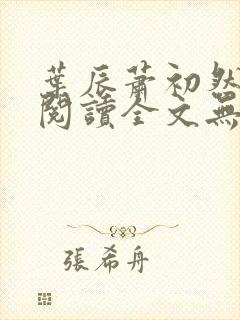 葉辰蕭初然
閱讀全文無
張希舟